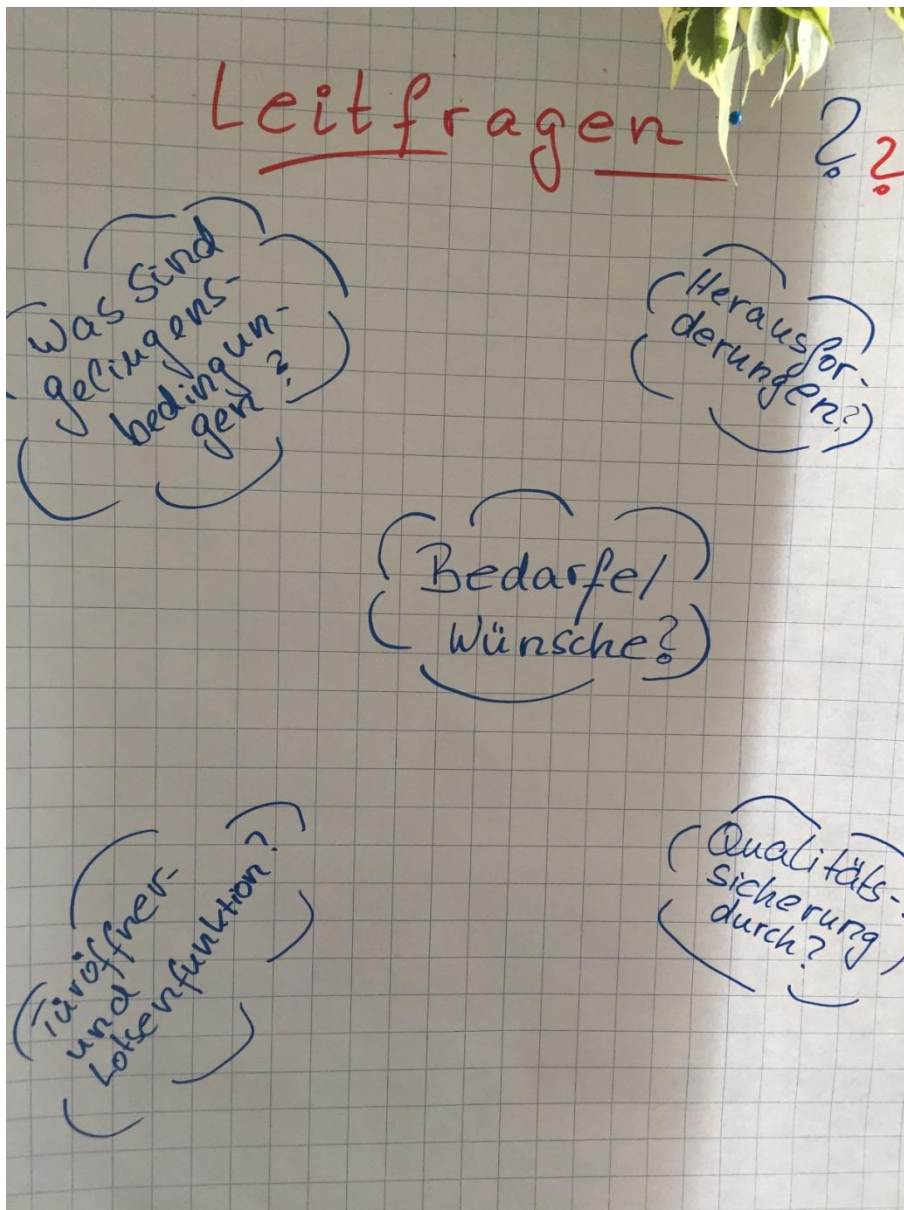 Leitfragen ? ?
Was sind
gelingens-
bedingun-
gen?
Herausfor-
derungen?
Bedarfe/
Wünsche?
Türöffner-
und
Lotsenfunktion?
Qualitäts-
sicherung
durch?